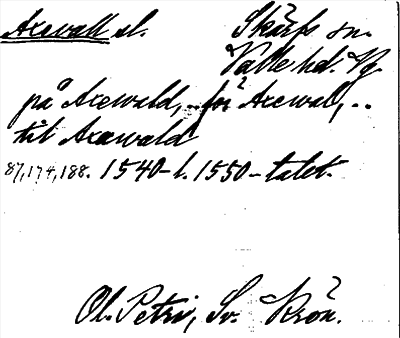 Axewall sl. Skärfs sn.
Valle hd. Vg.
på Axewald, .. för Axewall, ..
till Axewald
87,174,188. 1540- l. 1550-talet.
Ol. Petri, Sv. Krön.